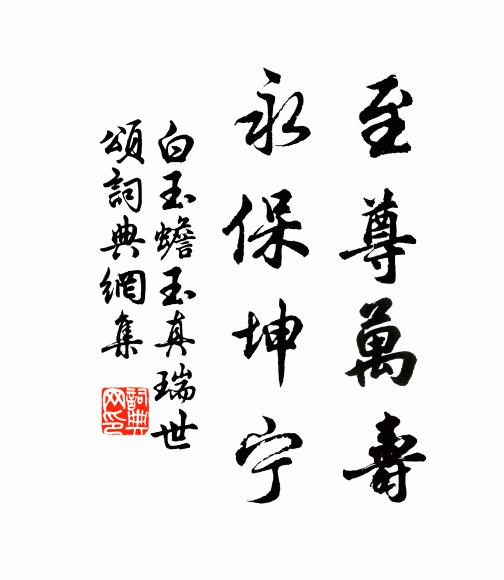 至尊萬壽
永保坤宁
白玉蟾玉真瑞世
頌詞典網集
詞典
网印